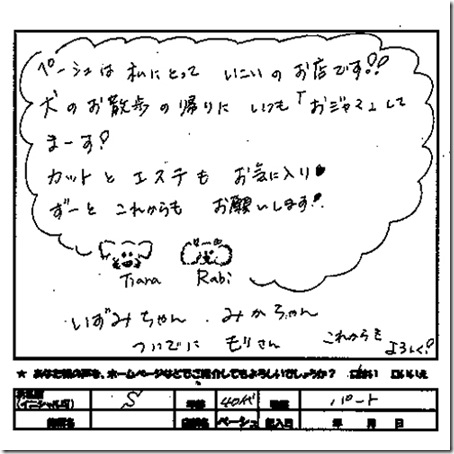 ペーシュは 私にとって いこいのお店です!!
犬のお散歩の帰りに いつも「おジャマ」して
まーす!
カットとエステも お気に入り♥
ずーと これからも お願いします!
Tiara Rabi
いずみちゃん、みかちゃん
ついでに もりさん これからも よろしく!
★ あなた様の声を、ホームページなどでご紹介してもよろしいでしょうか? □はい □いいえ
(イニシャル可) S 年齢 40代 職業 パート
店舗名 ペーシュ 記入日 年 月 日